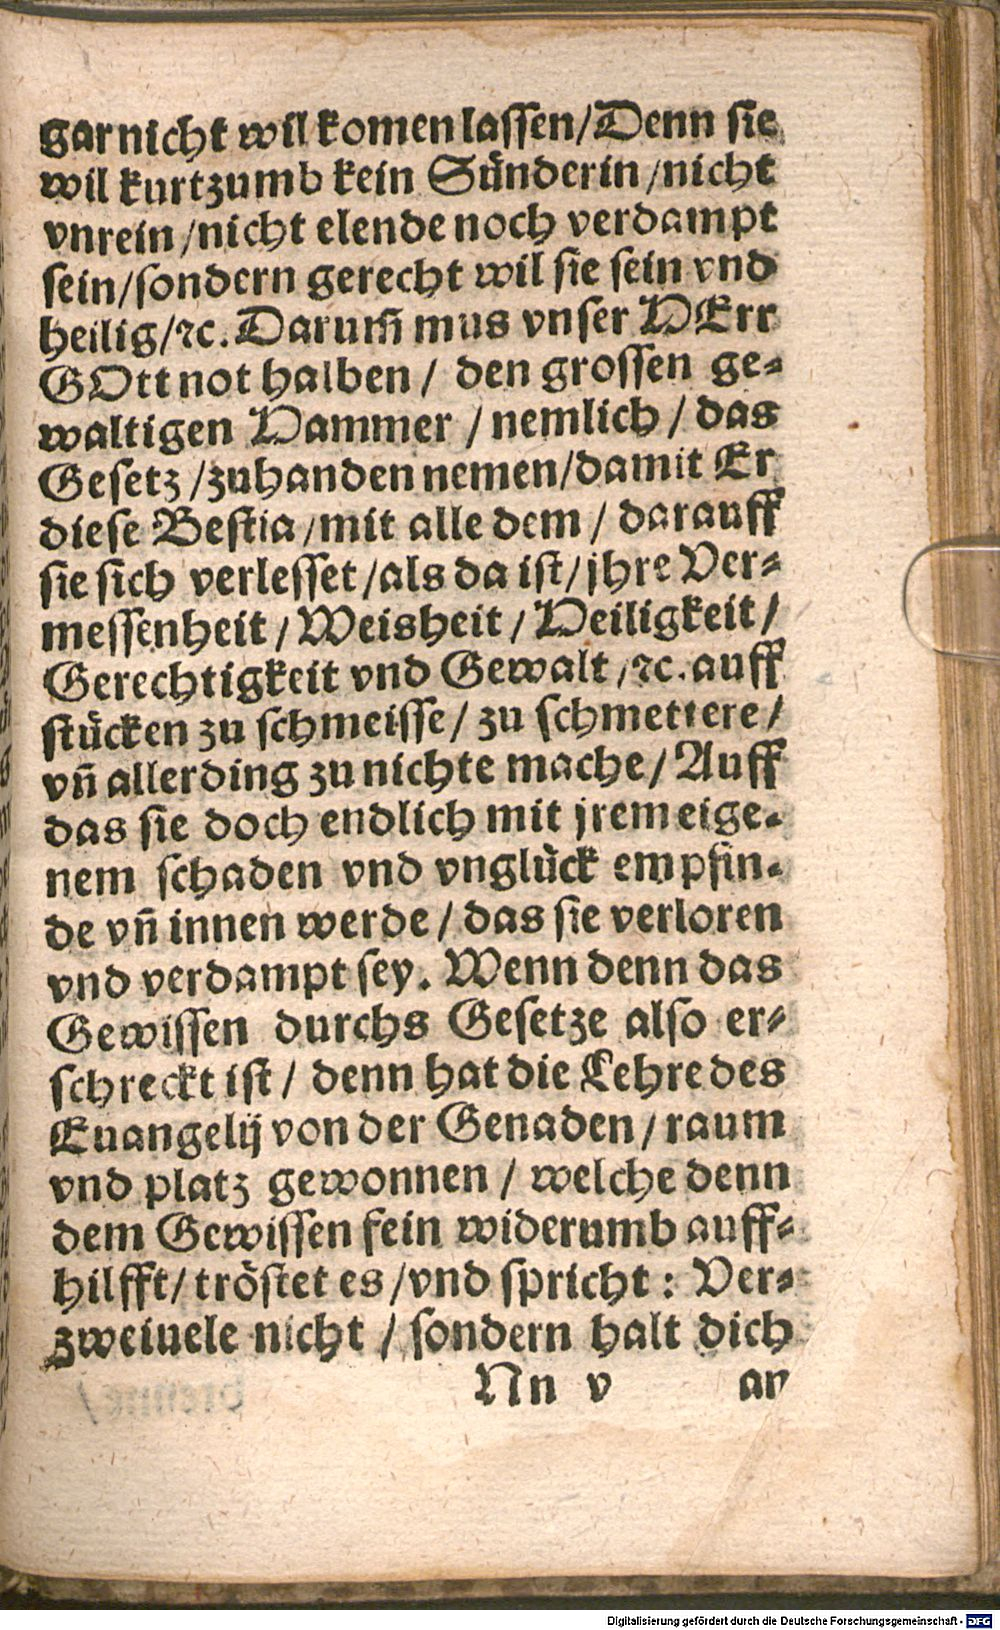 gar nicht wil komen lassen/Denn sie
wil kurtzumb kein Sünderin/nicht
vnrein/nicht elende noch verdampt
sein/sondern gerecht wil sie sein vnd
heilig/ꝛc. Darum̃ mus vnser HErr
GOtt not halben/ den grossen ge-
waltigen Hammer/nemlich/das
Gesetz/zuhanden nemen/damit Er
diese Bestia/mit alle dem/darauff
sie sich verlesset/als da ist/jhre Ver-
messenheit/Weisheit/Heiligkeit/
Gerechtigkeit vnd Gewalt/ꝛc. auff
stücken zu schmeisse/zu schmettere/
vñ allerding zu nichte mache/Auff
das sie doch endlich mit jrem eige-
nem schaden vnd vnglück empfin-
de vñ innen werde/das sie verloren
vnd verdampt sey. Wenn denn das
Gewissen durchs Gesetze also er-
schreckt ist/denn hat die Lehre des
Euangelij von der Genaden/raum
vnd platz gewonnen/welche denn
dem Gewissen fein widerumb auff-
hilfft/tröstet es/vnd spricht: Ver-
zweiuele nicht/sondern halt dich
Nn v an
Digitalisierung gefördert durch die Deutsche Forschungsgemeinschaft - DFG